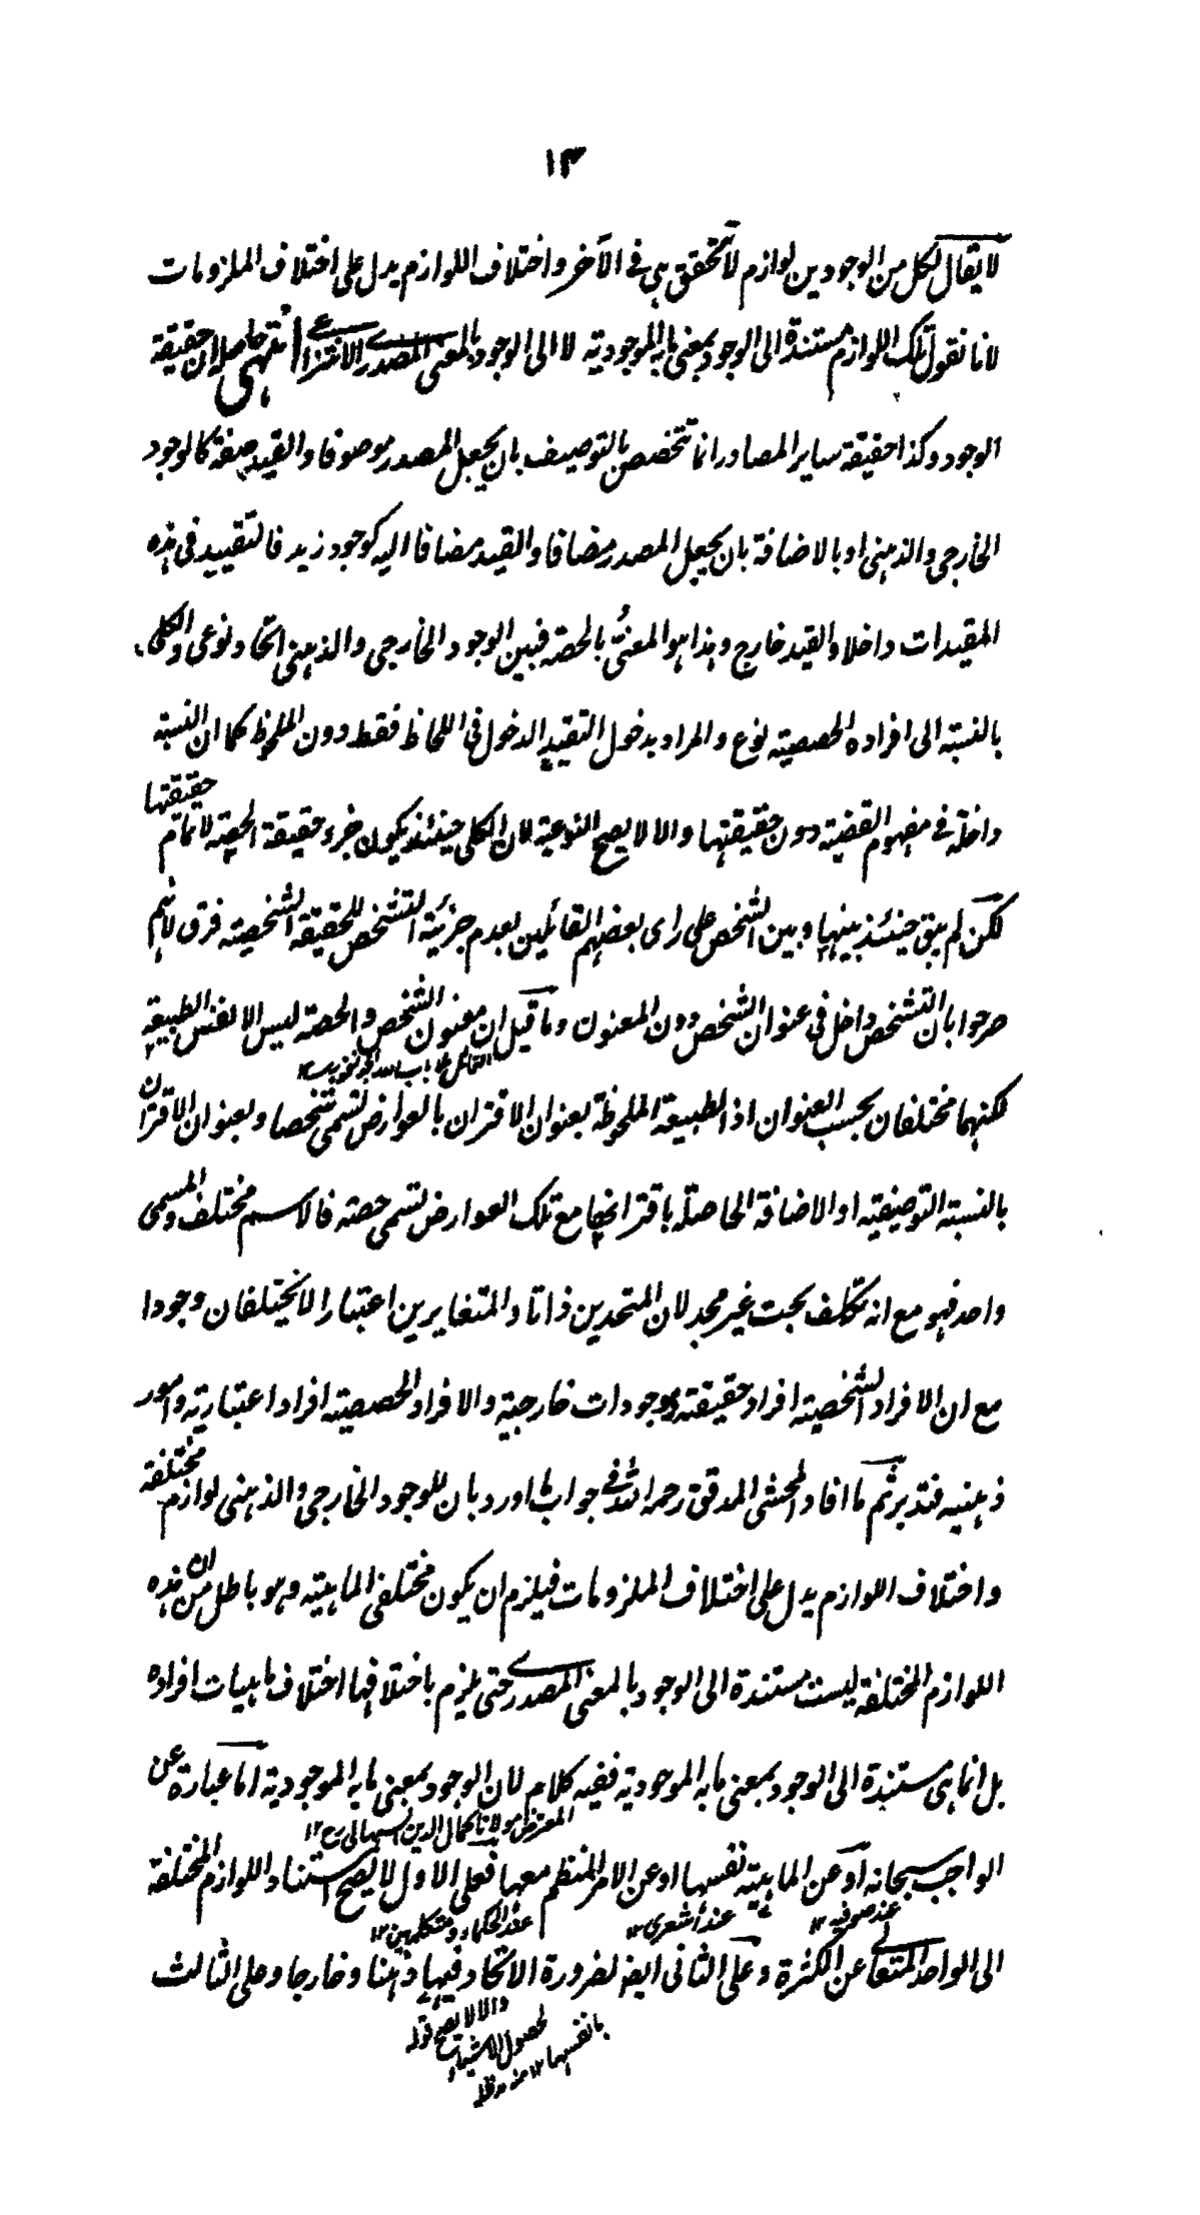 ١٣
لا يقال لكل من الوجودين لوازم لا تتحقق هى فى الآخر واختلاف اللوازم يدل على اختلاف الملزومات
لانا نقول تلك اللوازم مستندة الى الوجود بمعنى ما به الموجودية لا الى الوجود بالمعنى المصدرى الانتزاعى انتهى حاصله ان حقيقة
الوجود وكذا حقيقة ساير المصادر انما تتخصص بالتوصيف بان يجعل المصدر موصوفا والقيد صفة كالوجود
الخارجى والذهنى او بالاضافة بان يجعل المصدر مضافا والقيد مضافا اليه كوجود زيد فالتقييد فى هذه
المقيدات داخلا والقيد خارج وهذا هو المعنىُّ بالحصة فبين الوجود الخارجى والذهنى اتحاد نوعى والكلى
بالنسبة الى افراده الحصصية نوع والمراد بدخول التقييد الدخول فى اللحاظ فقط دون الملحوظ كما ان النسبة
داخلة فى مفهوم القضية دون حقيقتها والا لا يصح النوعية لان الكلى حينئذ يكون جزء حقيقة الحصة لا تمام حقيقتها
لكن لم يبق حينئذ بينها وبين الشخص على راى بعضهم القائلين بعدم جزئية التشخص للحقيقة الشخصية فرق لانهم
صرحوا بان التشخص داخل فى عنوان الشخص دون المعنون وما قيل ان معنون الشخص والحصة ليس الا نفس الطبيعة
لكنهما مختلفان بحسب العنوان اذ الطبيعة الملحوظة بعنوان الاقتران بالعوارض تسمى شخصا وبعنوان الاقتران
بالنسبة التوصيفية او الاضافة الحاصلة باقترانها مع تلك العوارض تسمى حصة فالاسم مختلف والمسمى
واحد فهو مع انه تكلف بحت غير مجد لان المتحدين ذاتا والمتغايرين اعتبارا لا يختلفان وجودا
مع ان الافراد الشخصية افراد حقيقة وموجودات خارجية والافراد الحصصية افراد اعتبارية وامور
ذهنية فتدبر ثم ما افاد المحشى المدقق رحمه الله فى جواب ما اورد بان للوجود الخارجى والذهنى لوازم مختلفة
واختلاف اللوازم يدل على اختلاف الملزومات فيلزم ان يكون مختلفى الماهية وهو باطل من ان هذه
اللوازم المختلفة ليست مستندة الى الوجود بالمعنى المصدرى حتى يلزم باختلافها اختلاف ماهيات افراده
بل انما هى مستندة الى الوجود بمعنى ما به الموجودية ففيه كلام لان الوجود بمعنى ما به الموجودية اما عبارة عن
المعترض مولانا كمال الدين السهالى رح ١٢
الواجب سبحانه او عن الماهية نفسها او عن الامر المنظم معها فعلى الاول لا يصح استناد اللوازم المختلفة
عند صوفيه ١٢ عند اشعرى ١٢ عند الحكماء ومتكلمين ١٢
الى الواحد المتعالى عن الكثرة وعلى الثانى ايضا لضرورة الاتحاد فيها ذهنا وخارجا وعلى الثالث
والا لا يصح قوله
لحصول الاشياء
بانفسها ١٢ منه